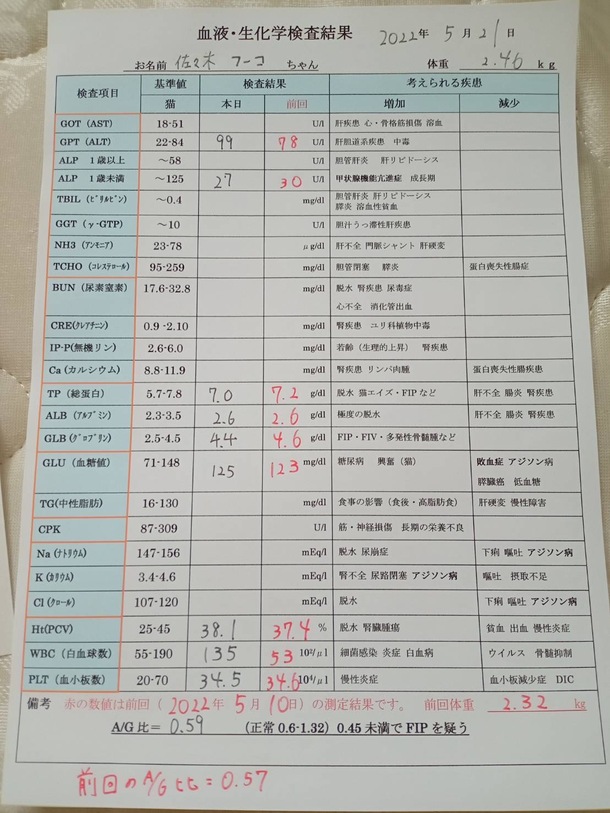 血液・生化学検査結果 2022年 5月21日
お名前 佐々木 フーコ ちゃん 体重 2.46 kg
検査項目 基準値 検査結果 考えられる疾患
猫 本日 前回 増加 減少
GOT (AST) 18-51 U/l 肝疾患 心・骨格筋損傷 溶血
GPT (ALT) 22-84 99 78 U/l 肝胆道系疾患 中毒
ALP 1歳以上 ～58 U/l 胆管肝炎 肝リピドーシス
ALP 1歳未満 ～125 27 30 U/l 甲状腺機能亢進症 成長期
TBIL (ﾋﾞﾘﾙﾋﾞﾝ) ～0.4 mg/dl 胆管肝炎 肝リピドーシス
膵炎 溶血性貧血
GGT (γ-GTP) ～10 U/l 胆汁うっ滞性肝疾患
NH3 (ｱﾝﾓﾆｱ) 23-78 μg/dl 肝不全 門脈シャント 肝硬変
TCHO (ｺﾚｽﾃﾛｰﾙ) 95-259 mg/dl 胆管閉塞 膵炎 蛋白喪失性腸症
BUN (尿素窒素) 17.6-32.8 mg/dl 脱水 腎疾患 尿毒症
心不全 消化管出血
CRE(ｸﾚｱﾁﾆﾝ) 0.9 -2.10 mg/dl 腎疾患 ユリ科植物中毒
IP-P(無機リン) 2.6-6.0 mg/dl 若齢（生理的上昇） 腎疾患
Ca (カルシウム) 8.8-11.9 mg/dl 腎疾患 リンパ肉腫 蛋白喪失性腸疾患
TP (総蛋白) 5.7-7.8 7.0 7.2 g/dl 脱水 猫エイズ・FIP など 肝不全 腸炎 腎疾患
ALB (ｱﾙﾌﾞﾐﾝ) 2.3-3.5 2.6 2.6 g/dl 極度の脱水 肝不全 腸炎 腎疾患
GLB (ｸﾞﾛﾌﾞﾘﾝ) 2.5-4.5 4.4 4.6 g/dl FIP・FIV・多発性骨髄腫など
GLU (血糖値) 71-148 125 123 mg/dl 糖尿病 興奮（猫） 敗血症 アジソン病
膵臓癌 低血糖
TG(中性脂肪) 16-130 mg/dl 食事の影響（食後・高脂肪食） 肝硬変 慢性障害
CPK 87-309 U/l 筋・神経損傷 長期の栄養不良
Na (ﾅﾄﾘｳﾑ) 147-156 mEq/l 脱水 尿崩症 下痢 嘔吐 アジソン病
K (ｶﾘｳﾑ) 3.4-4.6 mEq/l 腎不全 尿路閉塞 アジソン病 嘔吐 摂取不足
Cl (ｸﾛｰﾙ) 107-120 mEq/l 脱水 下痢 嘔吐 アジソン病
Ht(PCV) 25-45 38.1 37.4 % 脱水 腎臓腫瘍 貧血 出血 慢性炎症
WBC (白血球数) 55-190 135 53 10²/μl 細菌感染 炎症 白血病 ウイルス 骨髄抑制
PLT (血小板数) 20-70 34.5 34.6 10⁴/μl 慢性炎症 血小板減少症 DIC
備考 赤の数値は前回（2022年 5月10日）の測定結果です。 前回体重 2.32 kg
A/G 比＝ 0.59 （正常 0.6-1.32）0.45 未満で FIP を疑う
前回のA/G比＝0.57